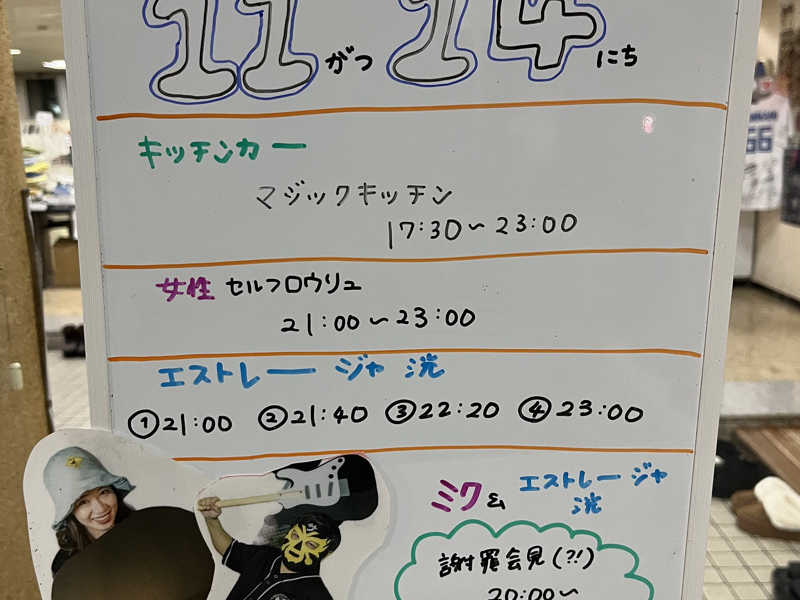 11がつ14にち
キッチンカー
マジックキッチン
17:30〜23:00
女性 セルフロウリュ
21:00〜23:00
エストレージャ 洸
①21:00 ②21:40 ③22:20 ④23:00
ミク& エストレージャ
洸
謝罪会見(?!)
20:00〜
66